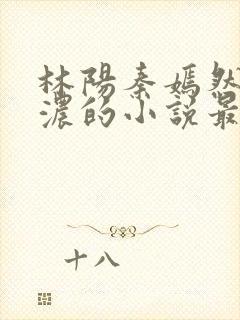 林陽秦嫣然
濃的小說最
十八